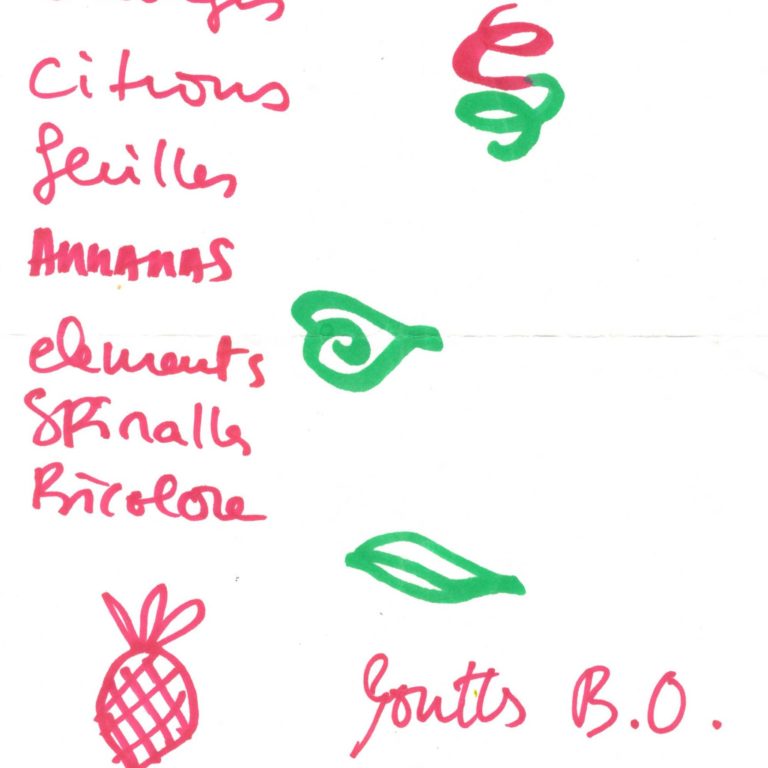 Citrons
feuilles
ANNANAS
elements
SPiralls
Bicolore
Goutts B.O.